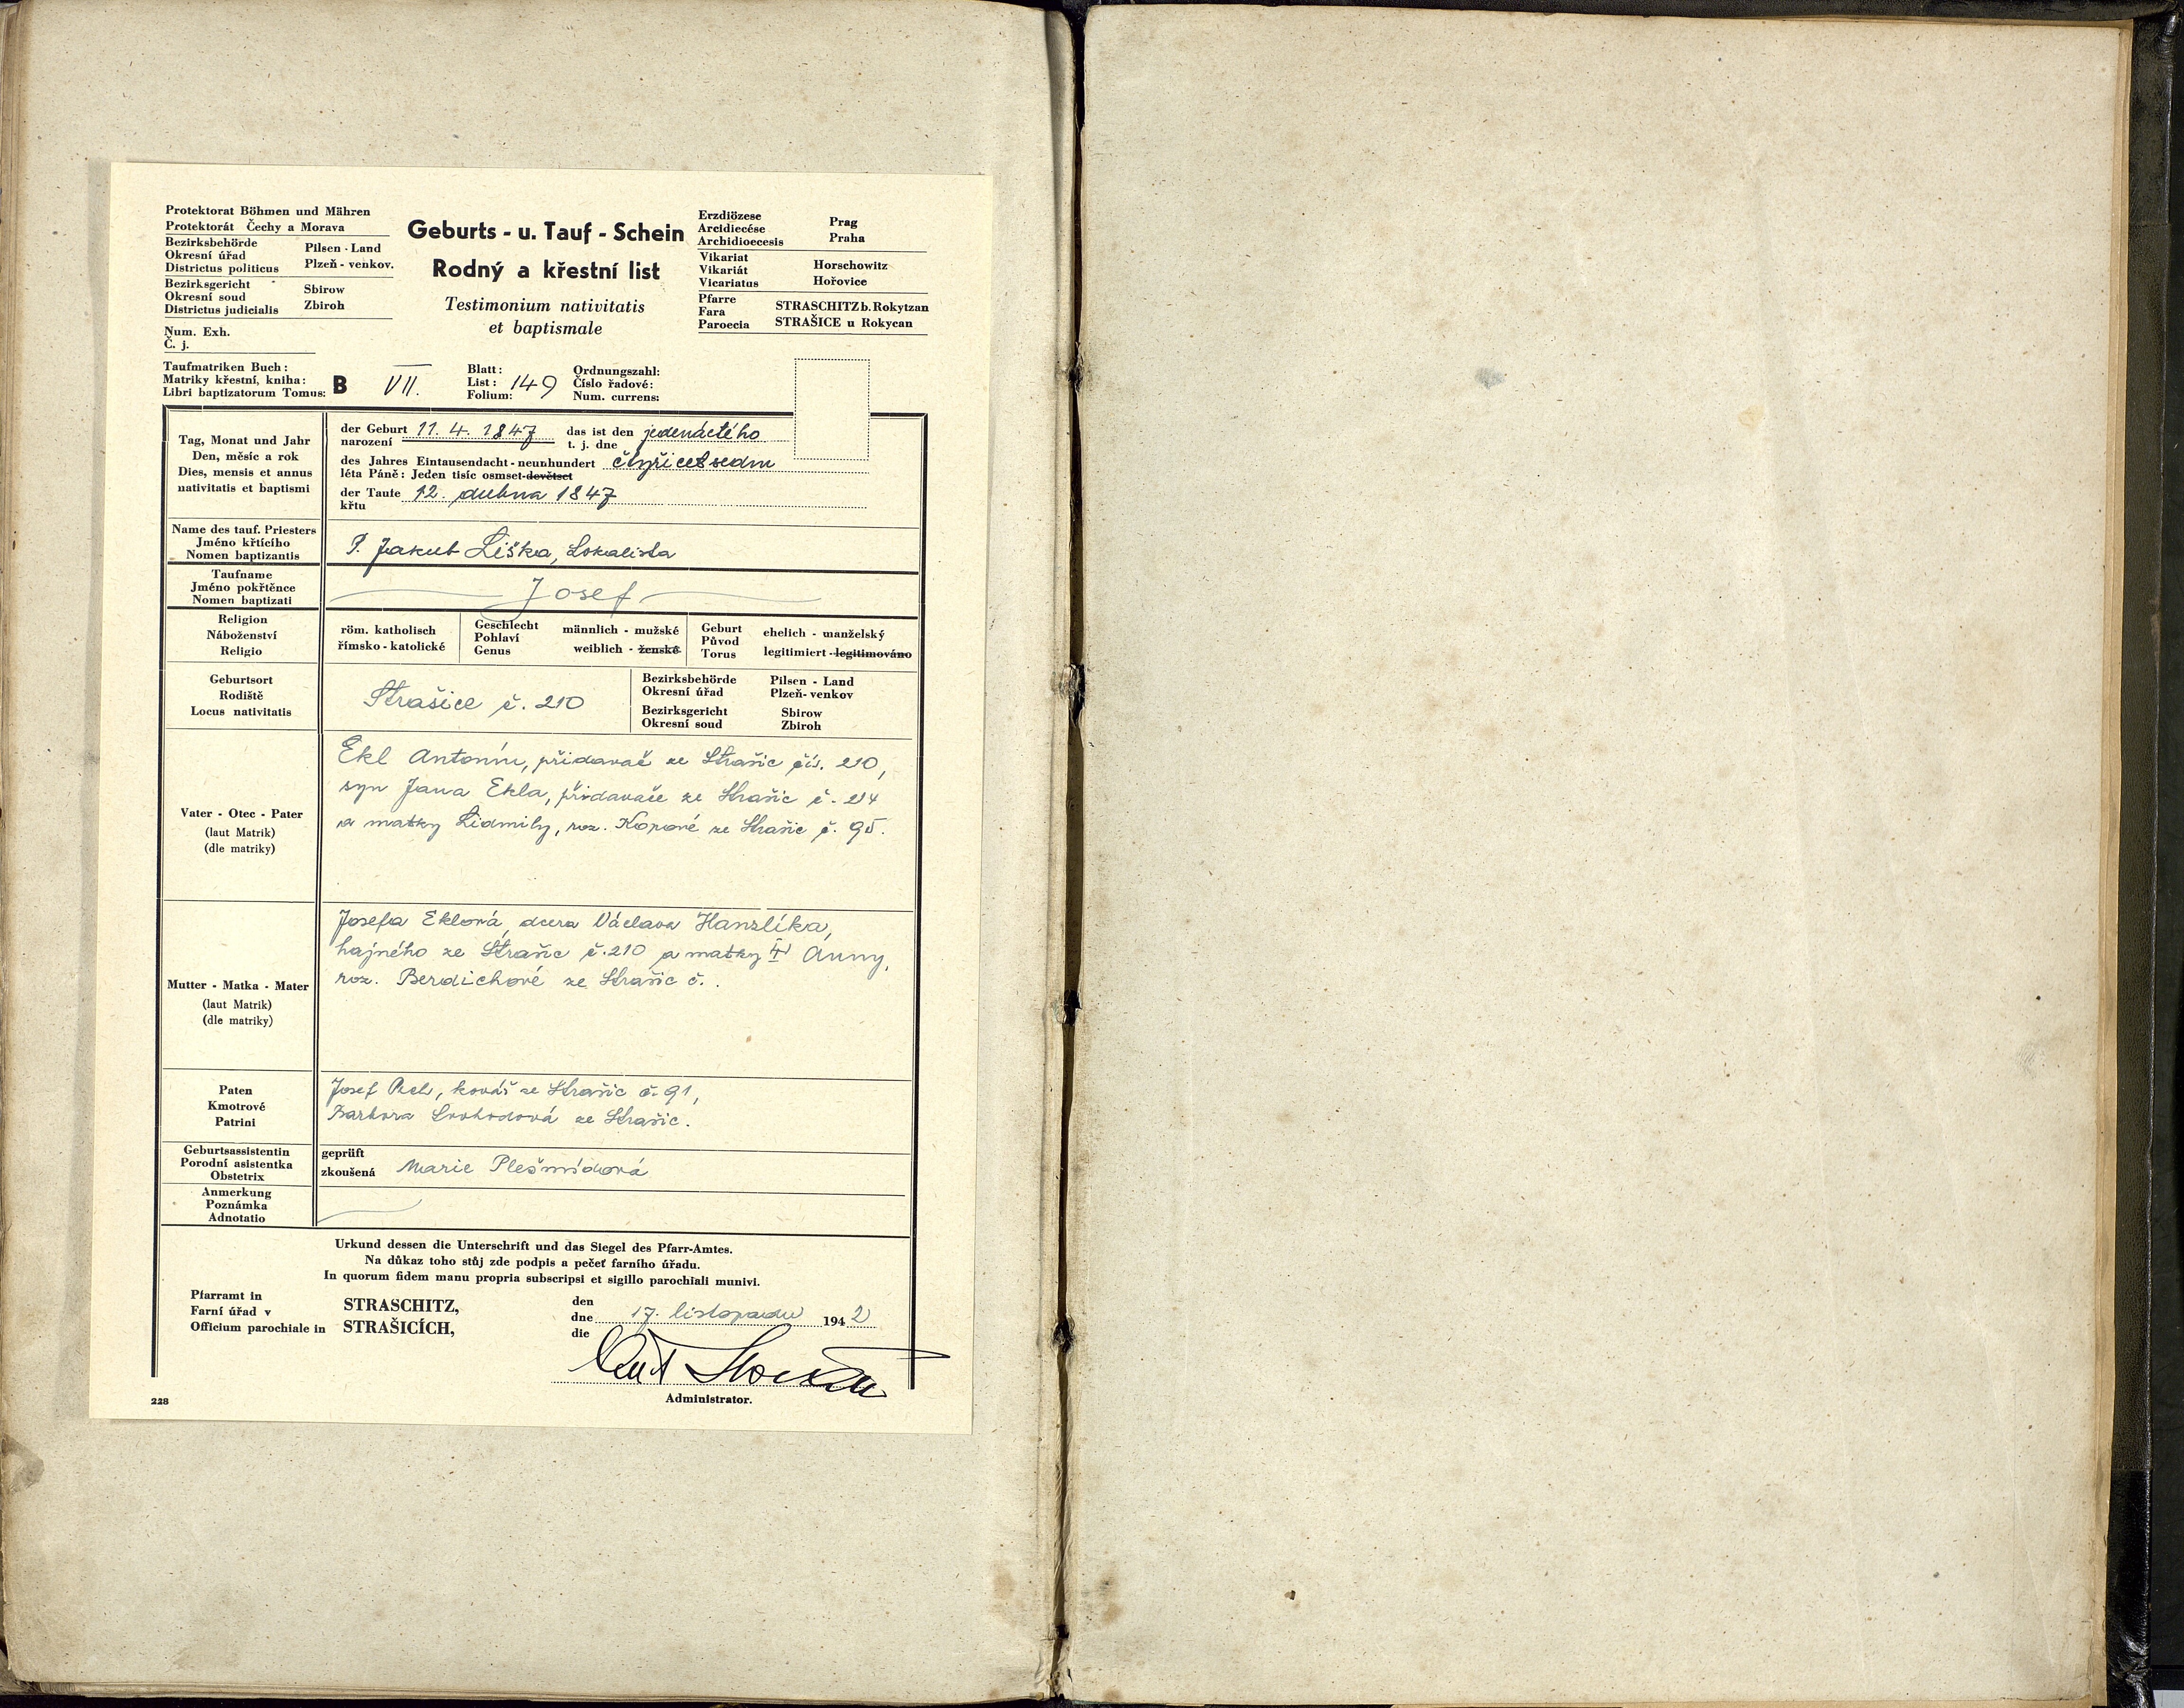 Protektorat Böhmen und Mähren
Protektorát Čechy a Morava
Bezirksbehörde
Okresní úřad
Districtus politicus
Pilsen - Land
Plzeň - venkov.
Bezirksgericht
Okresní soud
Districtus judicialis
Sbirow
Zbiroh
Num. Exh.
Č. j.
Geburts - u. Tauf - Schein
Rodný a křestní list
Testimonium nativitatis
et baptismale
Erzdiözese
Arcidiecése
Archidioecesis
Prag
Praha
Vikariat
Vikariát
Vicariatus
Horschowitz
Hořovice
Pfarre
Fara
Paroecia
STRASCHITZ b. Rokytzan
STRAŠICE u Rokycan
Taufmatriken Buch:
Matriky křestní, kniha:
Libri baptizatorum Tomus:
B VII.
Blatt:
List: 149
Folium:
Ordnungszahl:
Číslo řadové:
Num. currens:
Tag, Monat und Jahr
Den, měsíc a rok
Dies, mensis et annus
nativitatis et baptismi
der Geburt 11. 4. 1847 das ist den jedenáctého
narození t. j. dne
des Jahres Eintausendacht-neunhundert čtyřicetsedm
léta Páně: Jeden tisíc osmset-devětset
der Taufe 12. dubna 1847
křtu
Name des tauf. Priesters
Jméno křtícího
Nomen baptizantis
P. Jakub Liška, Lokalista
Taufname
Jméno pokřtěnce
Nomen baptizati
Josef
Religion
Náboženství
Religio
röm. katholisch
římsko-katolické
Geschlecht
Pohlaví
Genus
männlich - mužské
weiblich - ženské
Geburt
Původ
Torus
ehelich - manželský
legitimiert - legitimováno
Geburtsort
Rodiště
Locus nativitatis
Strašice č. 210
Bezirksbehörde
Okresní úřad
Pilsen - Land
Plzeň-venkov
Bezirksgericht
Okresní soud
Sbirow
Zbiroh
Vater - Otec - Pater
(laut Matrik)
(dle matriky)
Ekl Antonín, přidavač ze Strašic čís. 210,
syn Jana Ekla, přidavače ze Strašic č. 214
a matky Lidmily, roz. Kopové ze Strašic č. 95.
Mutter - Matka - Mater
(laut Matrik)
(dle matriky)
Josefa Eklová, dcera Václava Hanzlíka,
hajného ze Strašic č. 210 a matky Anny,
roz. Berdichové ze Strašic č. .
Paten
Kmotrové
Patrini
Josef , kovář ze Strašic č. 91,
Barbora Svobodová ze Strašic.
Geburtsassistentin
Porodní asistentka
Obstetrix
geprüft
zkoušená Marie Plešmídová
Anmerkung
Poznámka
Adnotatio
Urkund dessen die Unterschrift und das Siegel des Pfarr-Amtes.
Na důkaz toho stůj zde podpis a pečeť farního úřadu.
In quorum fidem manu propria subscripsi et sigillo parochiali munivi.
Pfarramt in
Farní úřad v
Officium parochiale in
STRASCHITZ,
STRAŠICÍCH,
den
dne 17. listopadu 1942
die
Administrator.
228